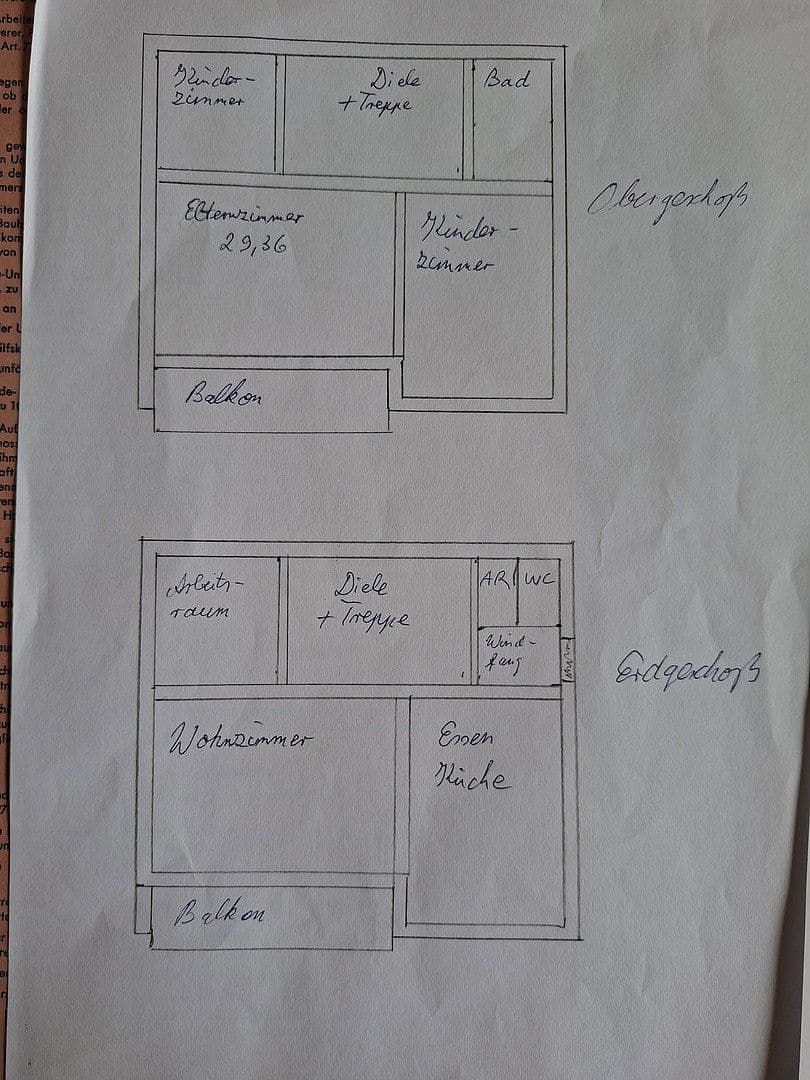 Kinder-
zimmer
Diele
+ Treppe
Bad
Elternzimmer
29,36
Kinder-
zimmer
Balkon
Obergeschoß
Arbeits-
raum
Diele
+ Treppe
AR
WC
Wind-
fang
Wohnzimmer
Essen
Küche
Balkon
Erdgeschoß